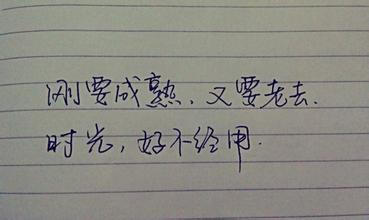 刚要成熟、又要老去.
时光，好不经用.